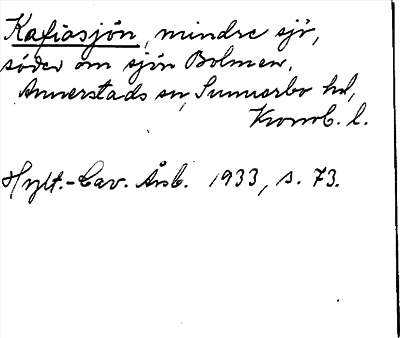 Kafiåsjön, mindre sjö,
söder om sjön Bolmen,
Annerstads sn, Sunnerbo hd,
Kronob. l.
Hylt.-Cav. Årsb. 1933, s. 73.